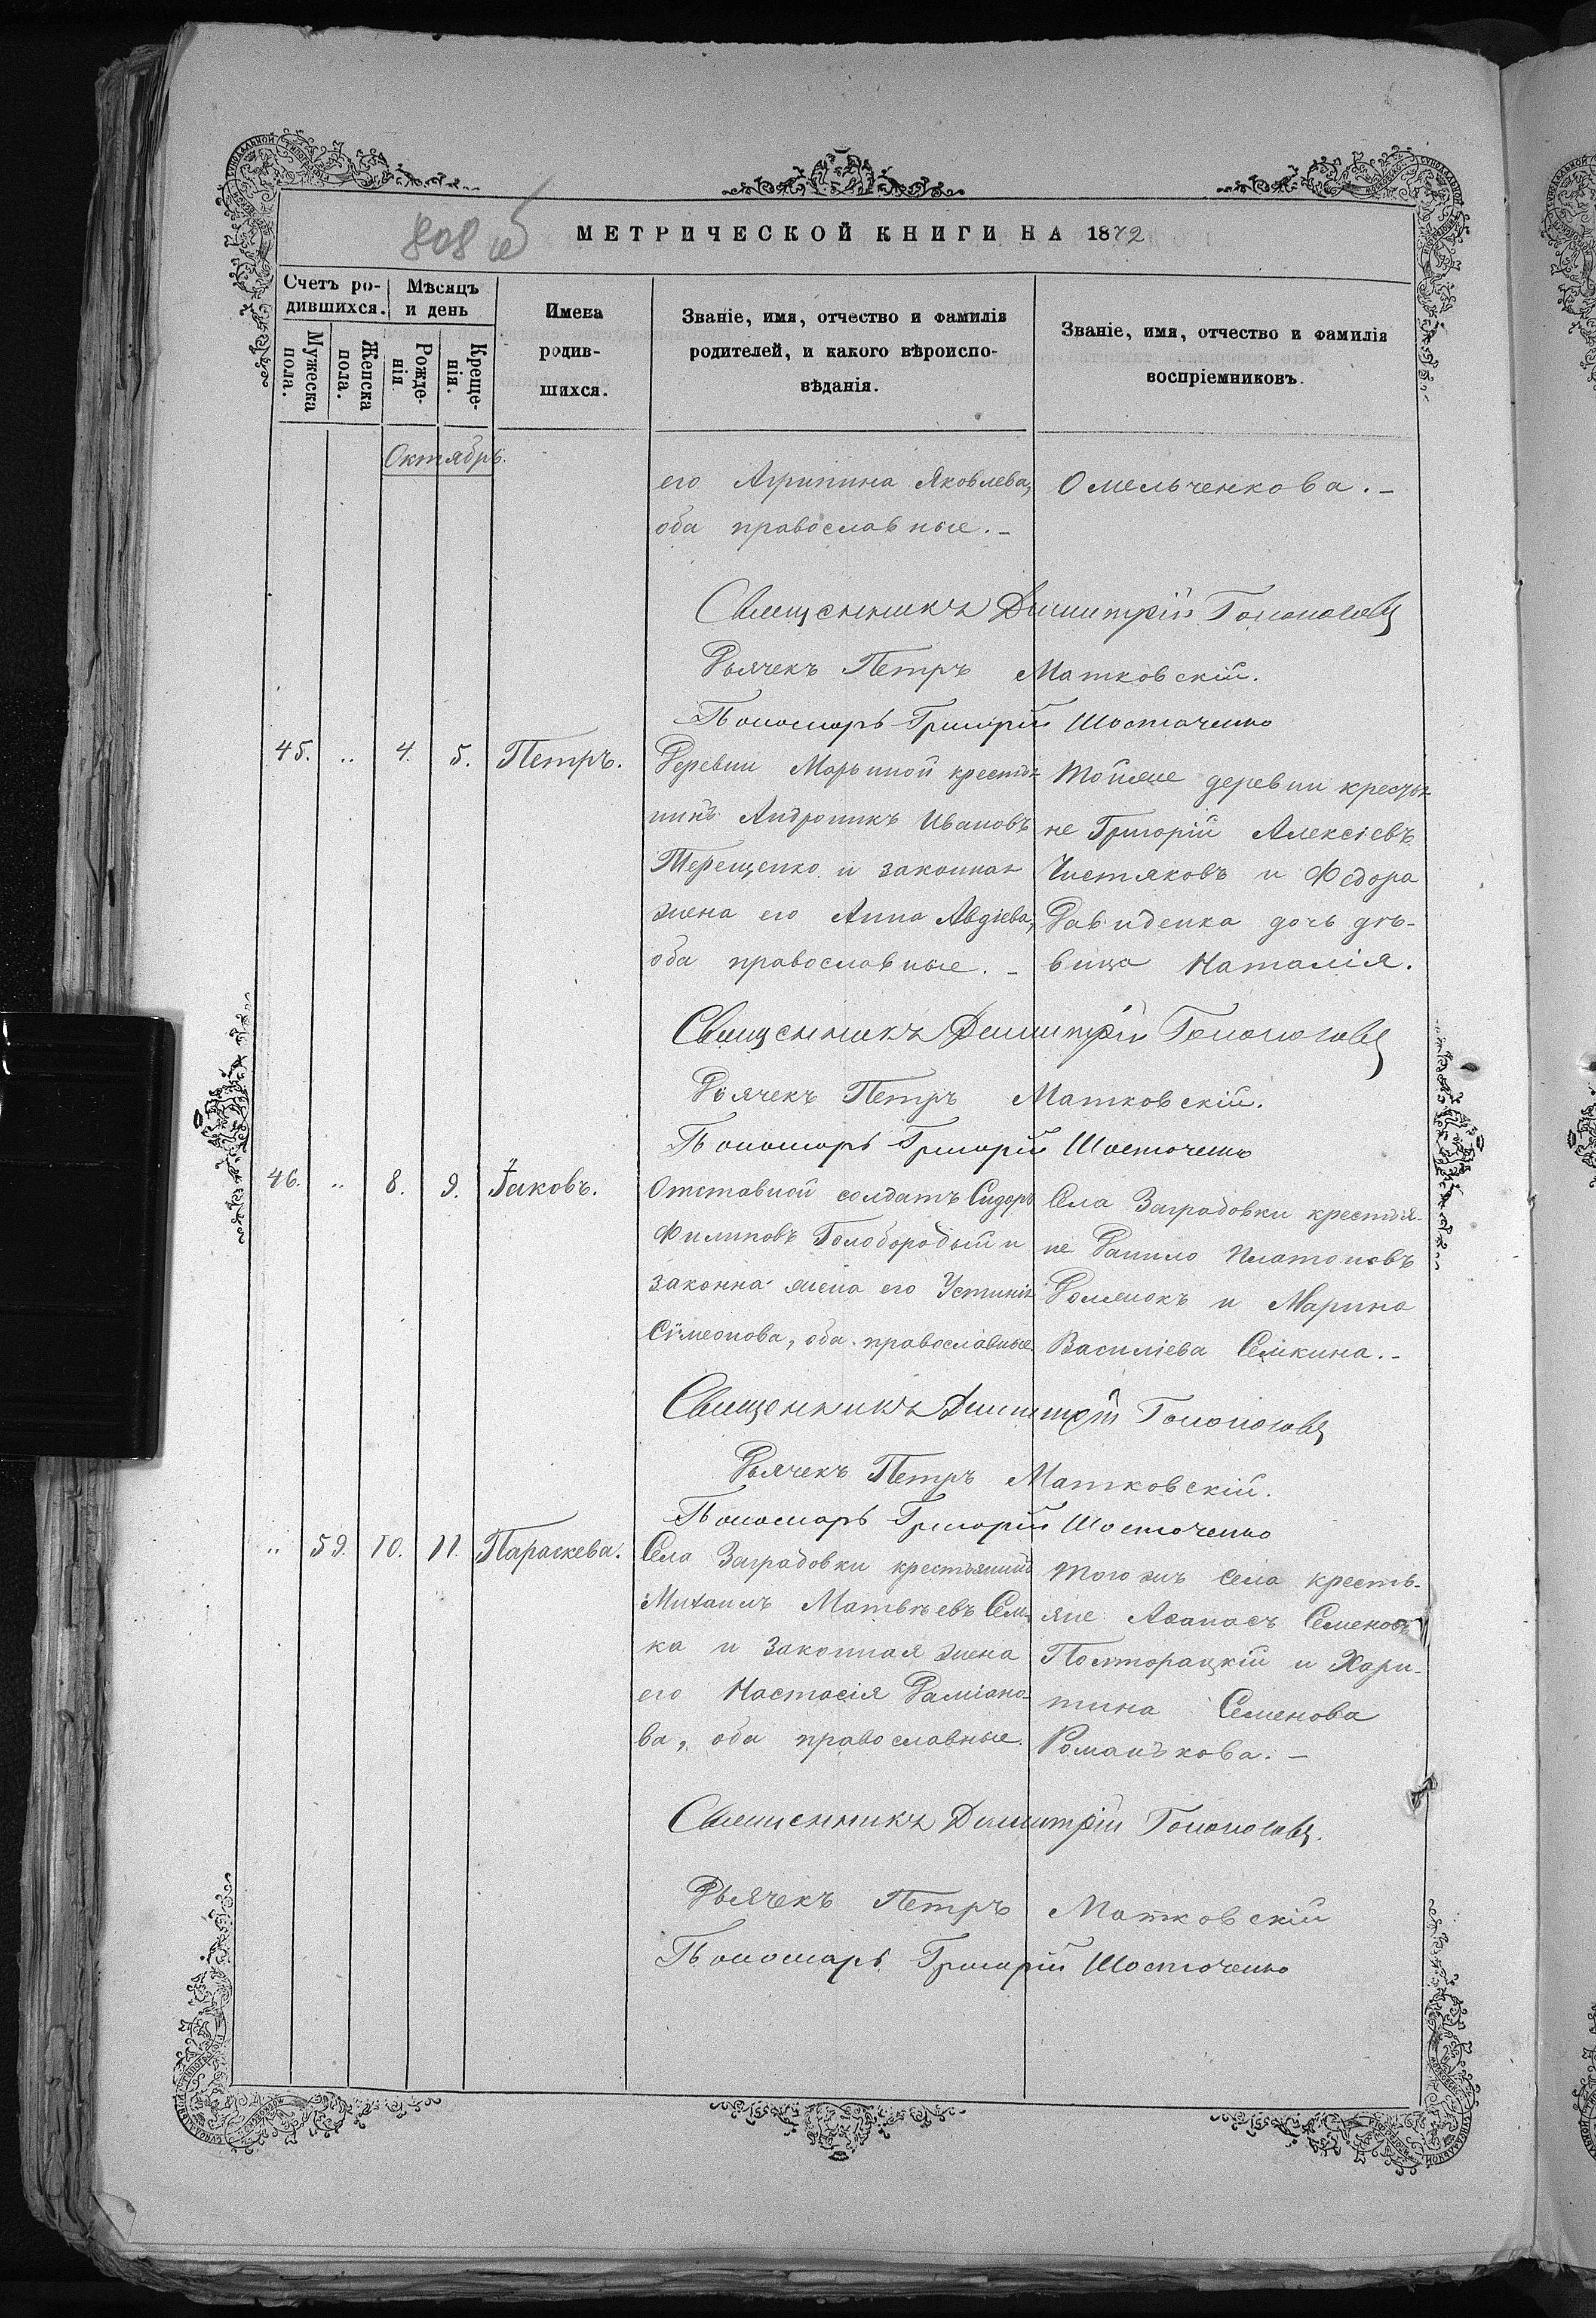 808 об
МЕТРИЧЕСКОЙ КНИГИ НА 1872
Счетъ ро-
дившихся.
Мужеска пола.
Женска пола.
Мѣсяцъ
и день
Рожде-
нія.
Креще-
нія.
Имена
родив-
шихся.
Званіе, имя, отчество и фамилія
родителей, и какого вѣроиспо-
вѣданія.
Званіе, имя, отчество и фамилія
воспріемниковъ.
Октябрь.
его Агрипина Яковлева,
оба православные.-
Омельченкова.-
Священникъ Димитрій
Дьячекъ Петръ Матковскій.
Пономарь Григорій Шостаченко
45. .. 4. 5. Петръ.
Деревни Марьиной крестья
нинъ Андроникъ Ивановъ
Терещенко и законная
жена его Анна Авдіева,
оба православные.-
Тойже деревни крестья
не Григорій Алексіевъ
Чистяковъ и Федора
Давиденка дочь дѣ-
вица Наталія.
Священникъ Димитрій
Дьячекъ Петръ Матковскій.
Пономарь Григорій Шостаченко
46. .. 8. 9. Іаковъ.
Отставной солдатъ Сидоръ
Филиповъ Голобородый и
законна жена его Устинія
Сѵмеонова, оба православные.
Села Заградовки крестья-
не Данило Платоновъ
и Марина
Василіева Семкина.-
Священникъ Димитрій
Дьячекъ Петръ Матковскій.
Пономарь Григорій Шостаченко
.. 59. 10. 11. Параскева.
Села Заградовки крестьянинъ
Михаилъ Матвѣевъ Сем-
ка и законная жена
его Настасія Даміано-
ва, оба православные.
Того жъ села кресть-
яне Аѳанасъ Семеновъ
Полторацкій и Хари-
тина Семенова
Романькова.-
Священникъ Димитрій
Дьячекъ Петръ Матковскій
Пономарь Григорій Шостаченко